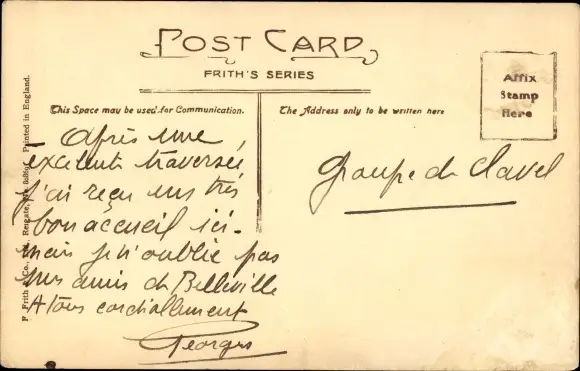 POST CARD
FRITH'S SERIES
Affix
Stamp
Here
This Space may be used for Communication.
The Address only to be written here
Après une
excelente traversée
j'ai reçu un très
bon accueil ici -
mais je n'oublie pas
mes amis de Belleville
A tous cordiallement
Georges
Groupe de Clavel
F. Frith & Co., Ltd. Reigate, Printed in England.